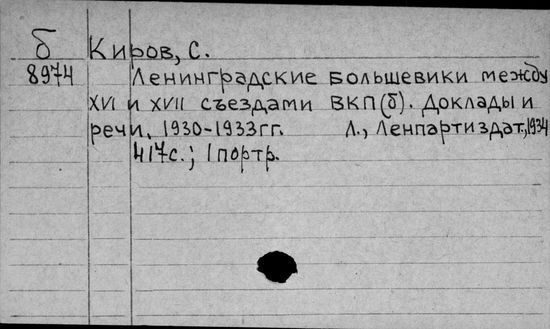 б Киров, С.
8974 Ленинградские большевики между
XVI и XVII съездами ВКП(б). Доклады и
речи. 1930-1933гг. Л., Ленпартиздат, 1934
417с.; 1 портр.